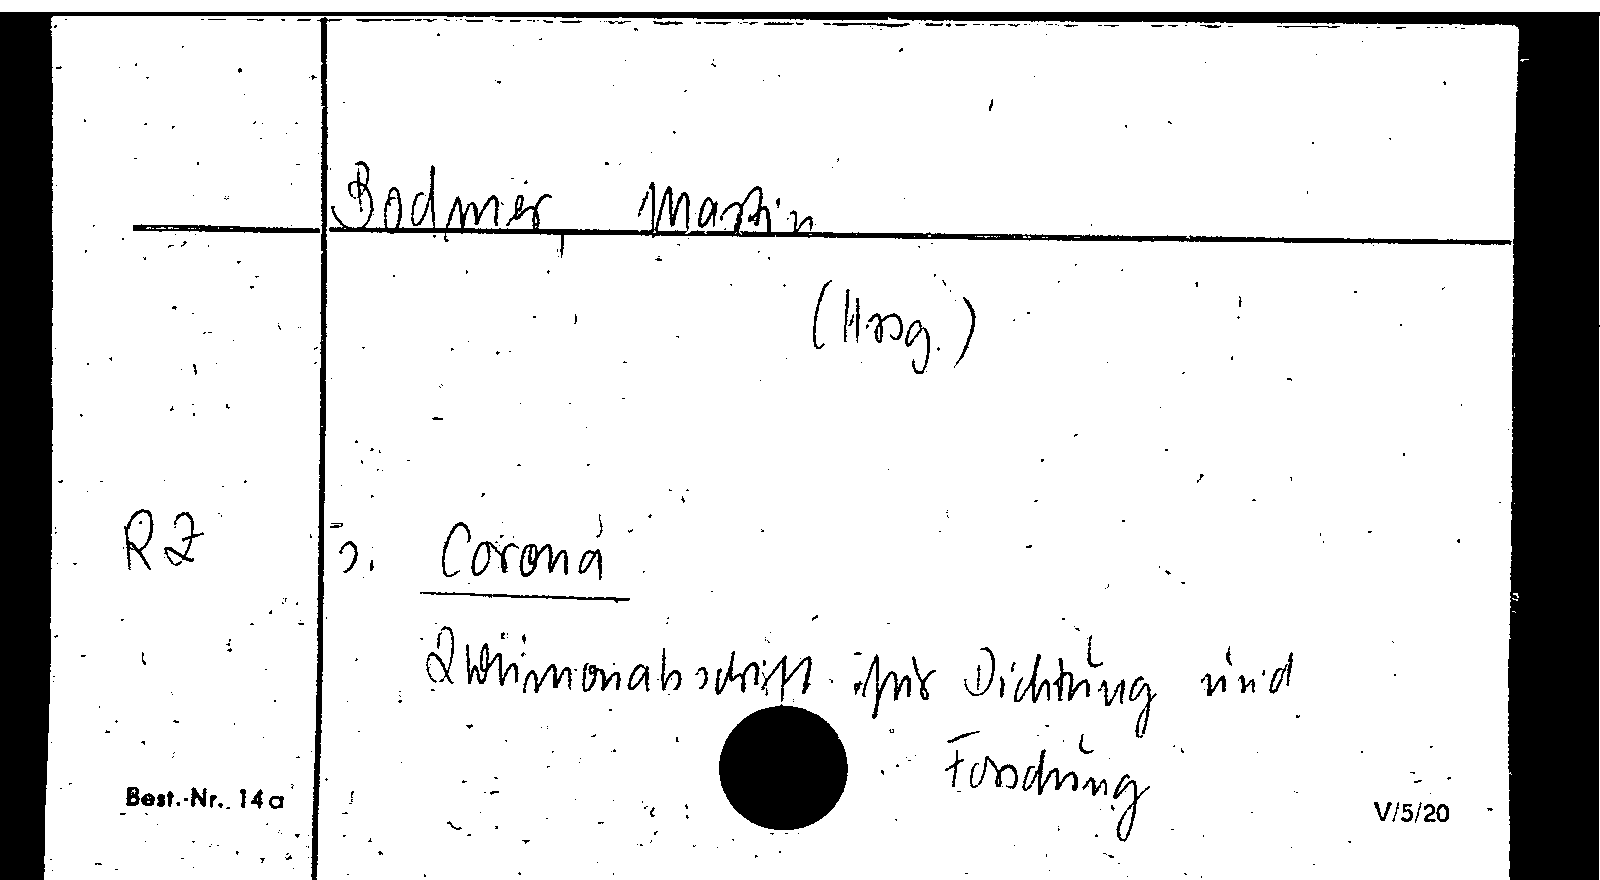 Bodmer, Martin
(Hrsg.)
RZ s. Corona
Zweimonatsschrift für Dichtung und
Forschung
Best.-Nr. 14a
V/5/20